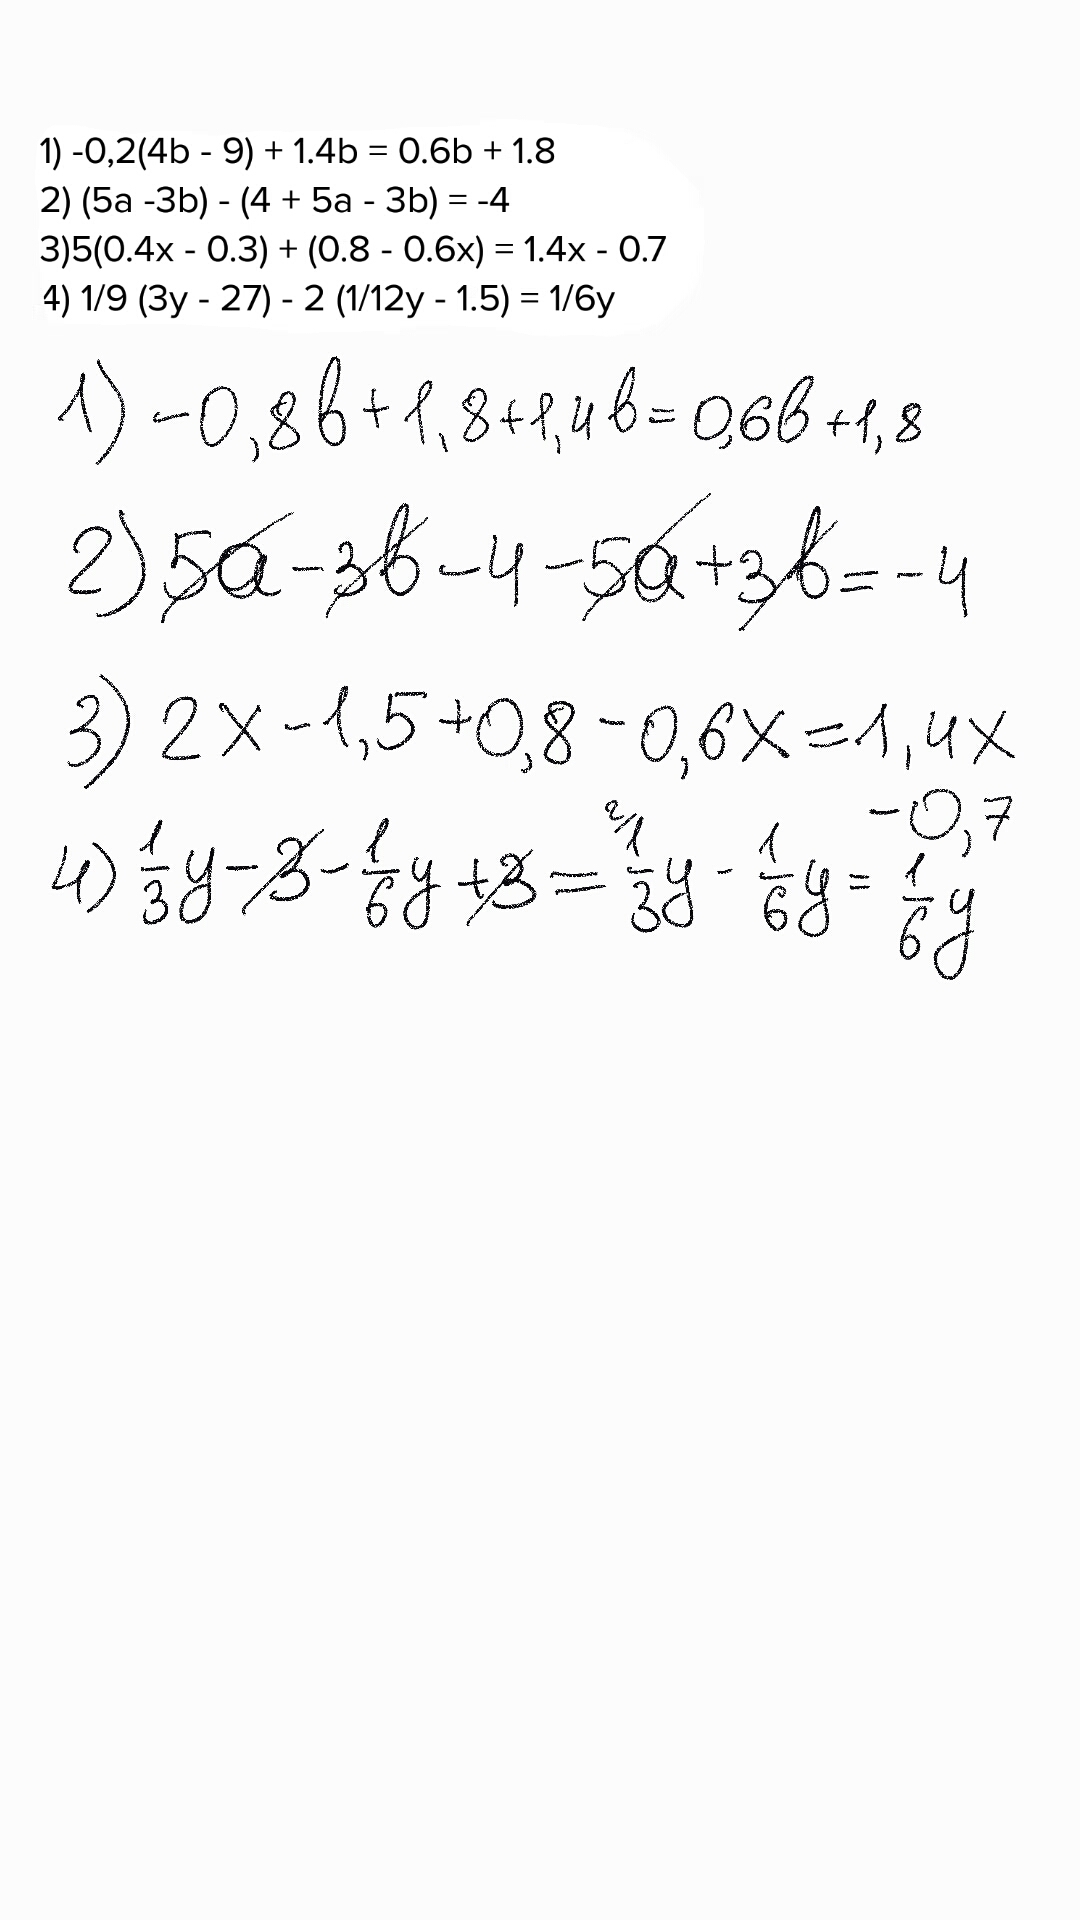 1) -0,2(4b - 9) + 1.4b = 0.6b + 1.8
2) (5a -3b) - (4 + 5a - 3b) = -4
3)5(0.4x - 0.3) + (0.8 - 0.6x) = 1.4x - 0.7
4) 1/9 (3y - 27) - 2 (1/12y - 1.5) = 1/6y
1) -0,8b+1,8+1,4b=0,6b+1,8
2) 5a-3b-4-5a+3b=-4
3) 2x-1,5+0,8-0,6x=1,4x
-0,7
4) 1/3y-3-1/6y+3= 2/ 1/3y-1/6y=1/6y